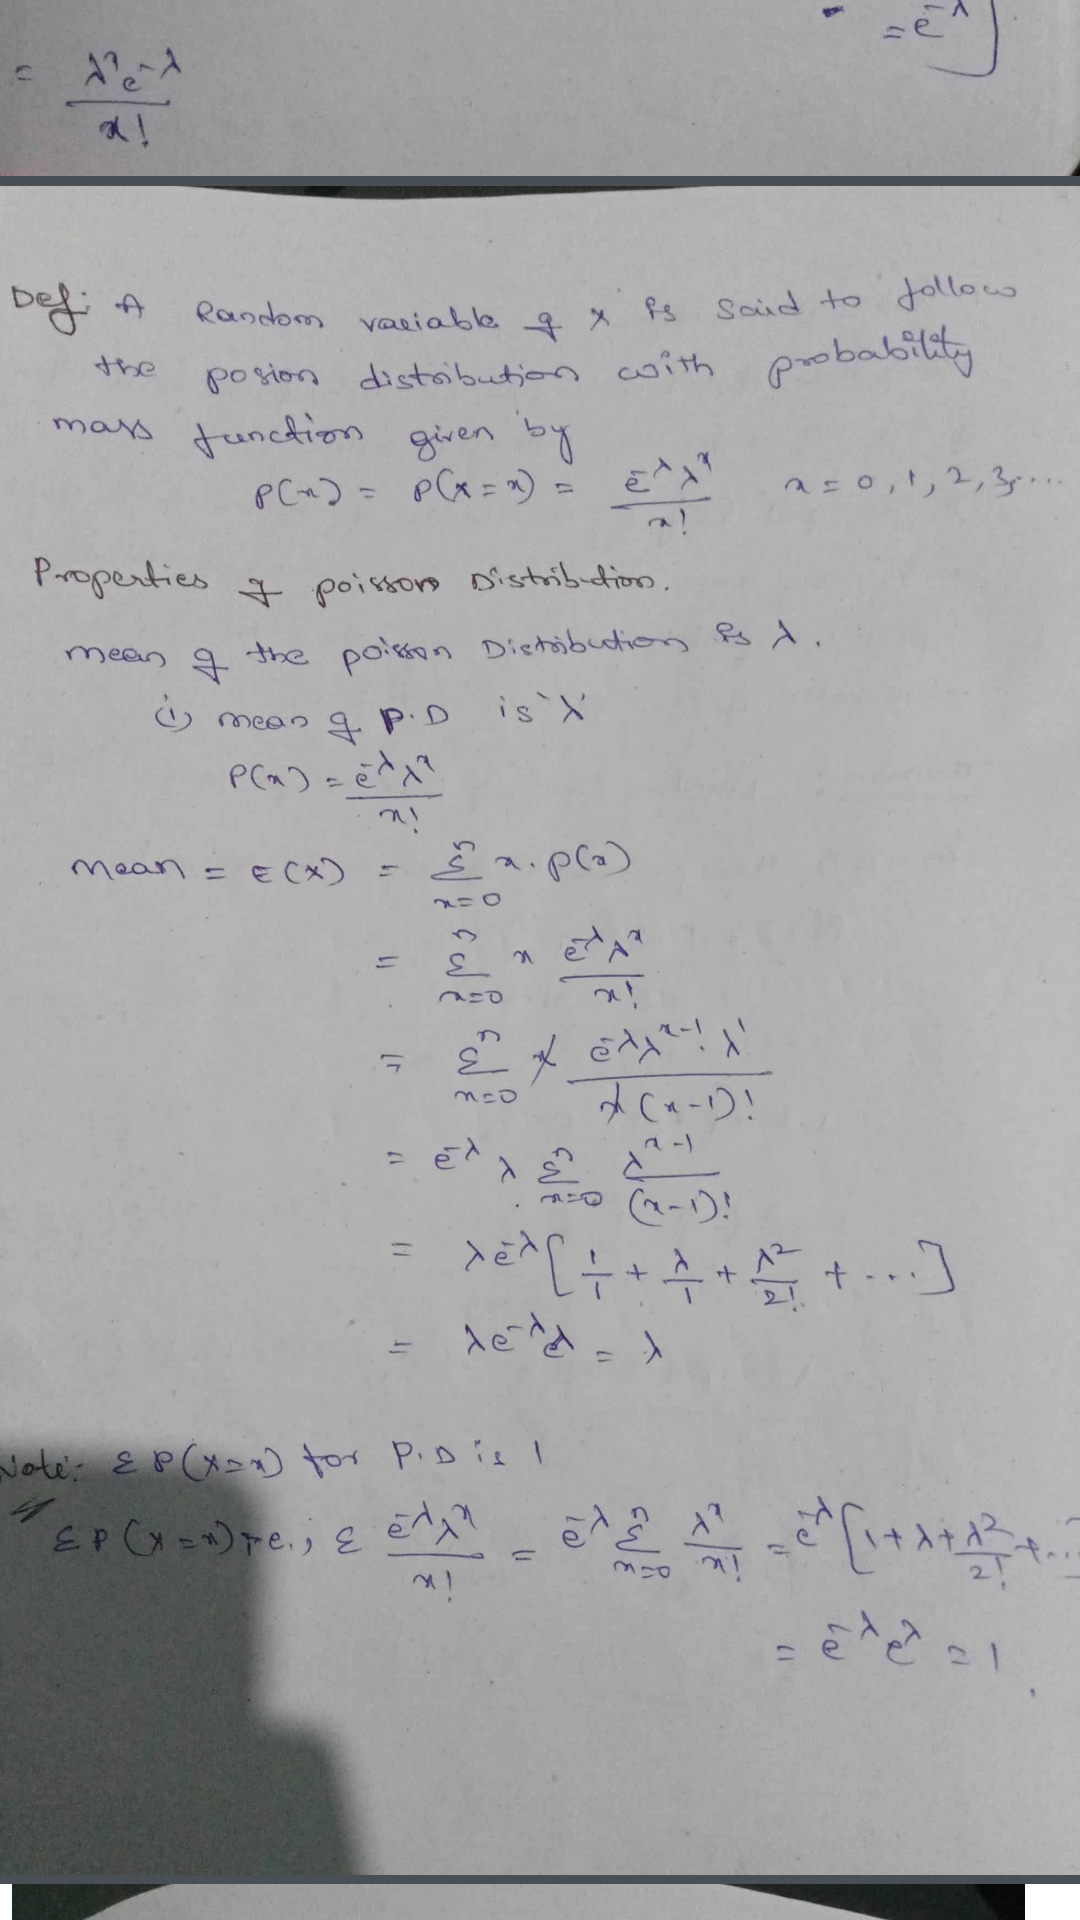 = e^-λ ]
= λ^x e^-λ / x!
Def: A Random variable of x is said to follow
the posion distribution with probability
mass function given by
P(x) = P(X = x) = e^-λ λ^x / x!   x = 0, 1, 2, 3, ....
Properties of poisson Distribution.
mean of the poisson Distribution is λ.
(i) mean of P.D is 'λ'
P(x) = e^-λ λ^x / x!
Mean = E(X) = Σ_{x=0}^{n} x. p(x)
= Σ_{x=0}^{n} x e^-λ λ^x / x!
= Σ_{x=0}^{n} x e^-λ λ^{x-1}. λ^1 / x (x-1)!
= e^-λ λ Σ_{x=0}^{n} λ^{x-1} / (x-1)!
= λ e^-λ [ 1/1 + λ/1 + λ^2/2! + ... ]
= λ e^-λ e^λ = λ
Note:- Σ P(X=x) for P.D is 1
Σ P(X=x) i.e., Σ e^-λ λ^x / x! = e^-λ Σ_{x=0}^{n} λ^x / x! = e^-λ [ 1 + λ + λ^2/2! + ...
= e^-λ e^λ = 1.